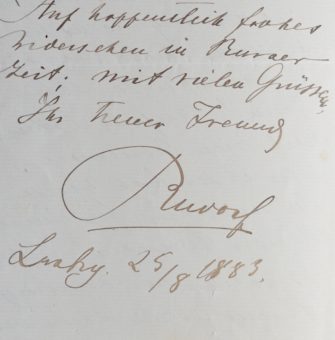 Auf hoffentlich frohes
Wiedersehen in kurzer
Zeit; mit vielen Grüssen,
Ihr treuer Freund
Rudolf
25/8 1883.